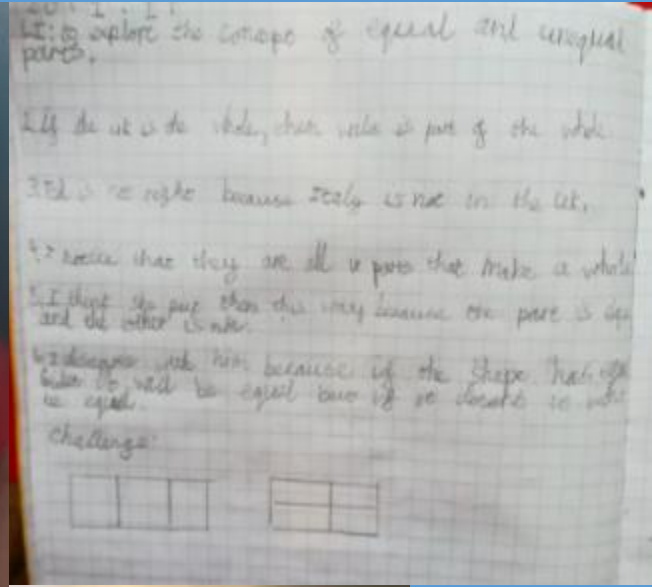 LI: to explore the concept of equal and unequal
parts.
2. If the uk is the whole, then wales is part of the whole.
3. Ed is not right because Italy is not in the uk.
4. I notice that they are all in parts that make a whole
5. I think she put them this way because one part is
and the other is not.
6. I disagree with him because if the shape has
it will be equal but if it doesn't it
be equal.
Challenge: